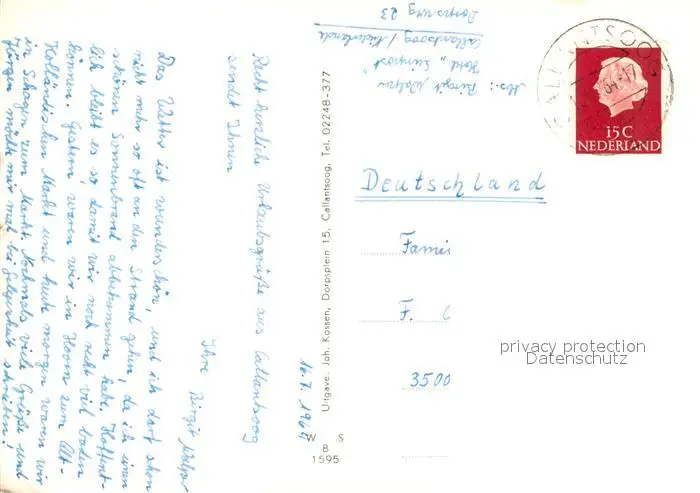 Recht herzliche Urlaubsgrüße aus Callantsoog
sendet Ihnen
Ihre Birgit
Das Wetter ist wunderschön, und ich darf schon
nicht mehr so oft an den Strand gehen, da ich einen
schönen Sonnenbrand abbekommen habe. Hoffent-
lich bleibt es so damit wir noch recht viel baden
können. Gestern waren wir in Hoorn zum Alt-
Holländischen Markt und heute morgen waren wir
in Schagen zum Markt. Nochmals viele Grüße und
Jürgen möchte mir mal bei Gelegenheit schreiben!
16.7.1969
Uitgave: Joh. Kossen, Dorpsplein 15, Callantsoog, Tel. 02248-377
W S
B
1595
Abs.: Birgit
Hotel „Seinpost"
Callantsoog / Niederlande
Dorpsweg 23
CALLANTSOOG
15C
NEDERLAND
Deutschland
Famil
F. C
3500
privacy protection
Datenschutz